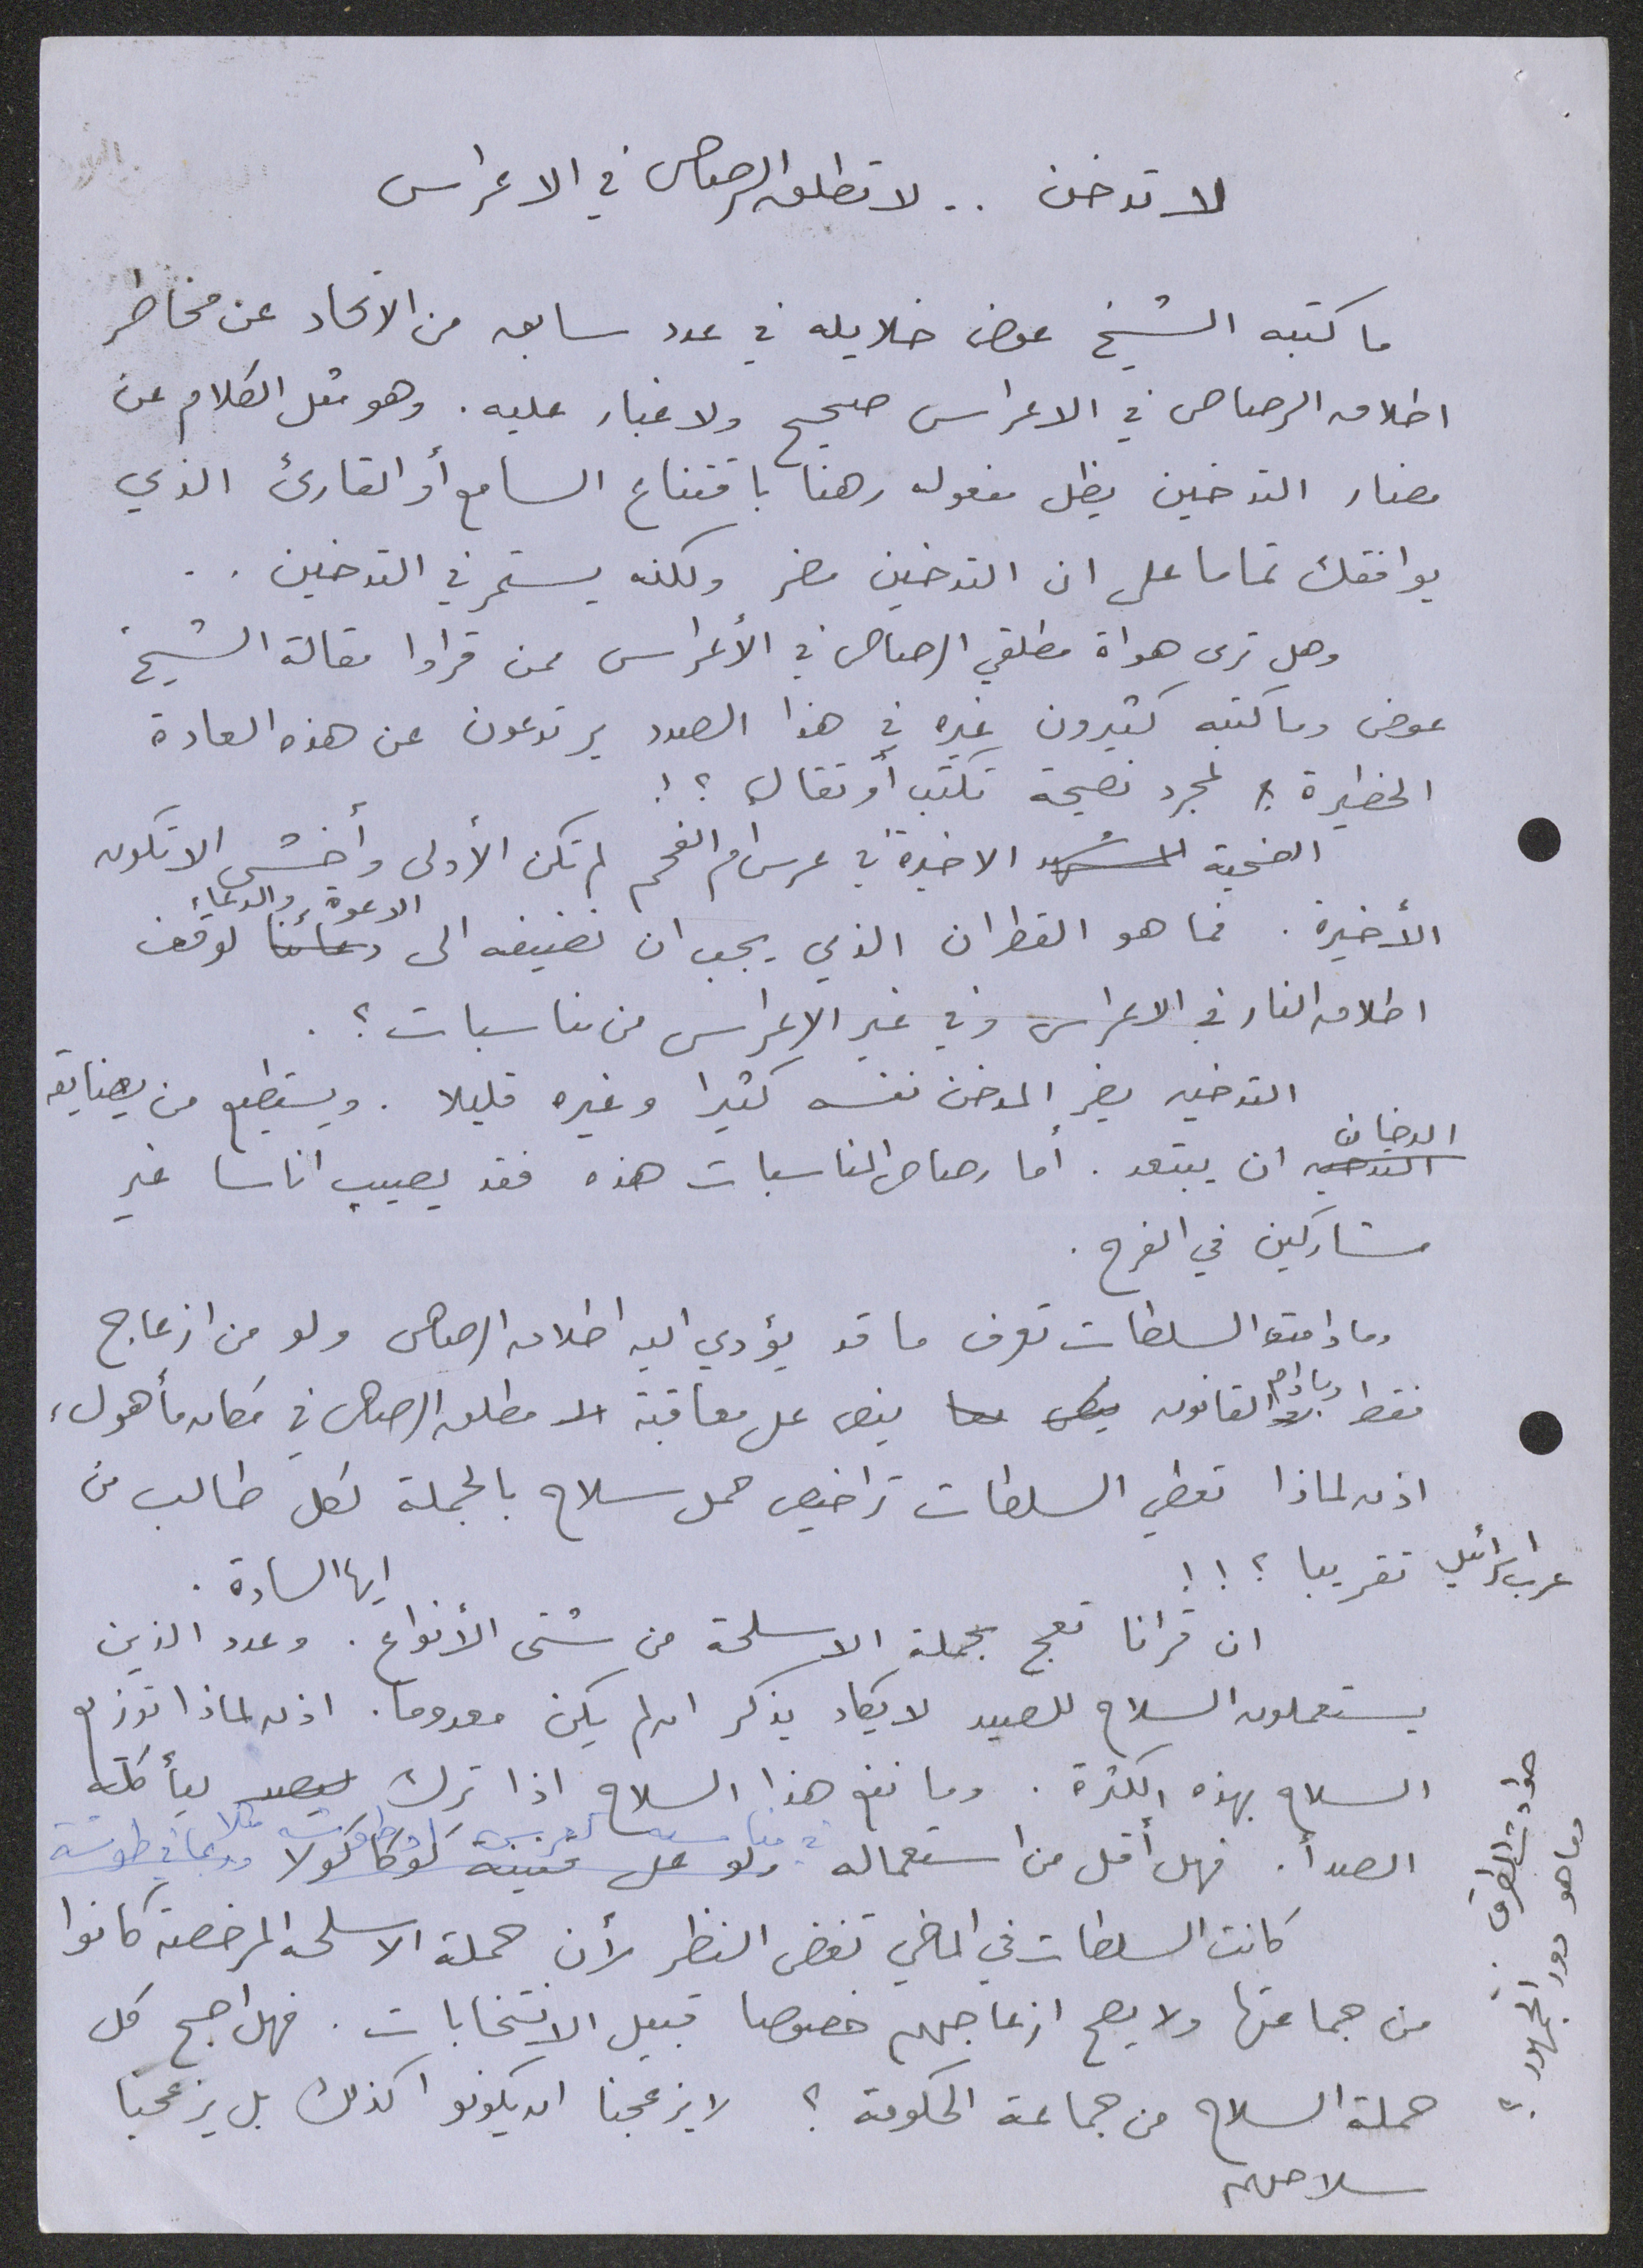 لا تدخن .. لا تطلق الرصاص في الاعراس
ما كتبه الشيخ عوض خلايله في عدد سابق من الاتحاد عن مخاطر
اطلاق الرصاص في الاعراس صحيح ولا غبار عليه . وهو مثل الكلام عن
مضار التدخين يظل مفعوله رهنا باقتناع السامع أو القارئ الذي
يوافقك تماما على ان التدخين مضر ولكنه يستمر في التدخين ..
وهل ترى هواة مطلقي الرصاص في الأعراس ممن قراوا مقالة الشيخ
عوض وما كتبه كثيرون غيره في هذا الصدد يرتدعون عن هذه العادة
الخطيرة لمجرد نصيحة تكتب أو تقال ؟!
الضحية الاخيرة في عرس ام الفحم لم تكن الأولى وأخشى الا تكون
الدعوة والدعاء
الأخيرة . فما هو القطران الذي يجب ان نضيفه الى دعائنا لوقف
اطلاق النار في الاعراس وفي غير الاعراس من مناسبات ؟ .
التدخين يضر المدخن نفسه كثيرا وغيره قليلا . ويستطيع من يضايقه
الدخان
التدخين ان يبتعد . أما رصاص المناسبات هذه فقد يصيب اناسا غير
مشاركين في الفرح .
وما دامت السلطات تعرف ما قد يؤدي اليه اطلاق الرصاص ولو من ازعاج
وما دام
فقط القانون ينص على معاقبة مطلق الرصاص في مكان مأهول ،
اذن لماذا تعطي السلطات تراخيص حمل سلاح بالجملة لكل طالب من
عرب اسرائيل تقريبا ؟!!
ايها السادة .
ان قرانا تعج بحملة الاسلحة من شتى الأنواع . وعدد الذين
يستعملون السلاح للصيد لا يكاد يذكر ان لم يكن معدوما . اذن لماذا توزيع
السلاح بهذه الكثرة . وما نفع هذا السلاح اذا ترك ليأكله
في مناسبة
الصدأ . فهل أقل من استعماله ولو على قنينة كوكاكولا
كانت السلطات في الماضي تغض النظر لأن حملة الاسلحة المرخصة كانوا
من جماعتها ولا يصح ازعاجهم خصوصا قبيل الانتخابات . فهل اصبح كل
حملة السلاح من جماعة الحكومة ؟ لا يزعجنا ان يكونوا كذلك بل يزعجنا
سلاحهم
حوادث الطرق .
وما هو دور الجمهور ؟